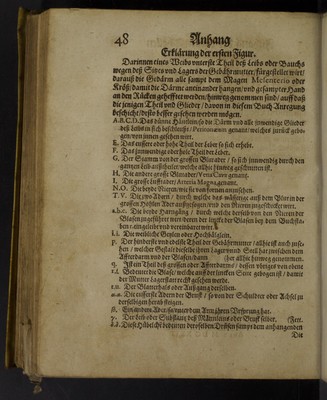 48 Anhang
Erklärung der ersten Figur.
Darinnen eines Weibs vnterste Theil deß Leibs oder Bauchs
wegen deß Sitzes vnd Lagers der Gebährmutter, fürgestellet wirt/
darauß die Gedärm alle sampt dem Magen Mesenterio oder
Kröß/ damit die Därme aneinander hangen/ vnd
an den Rücken gehefftet werden/hinweg genommen sind/ auff daß
die jenigen Theil vnd Glieder/ davon in diesem Buch Anregung
beschicht/desto besser gesehen werden mögen.
A.B.C.D. Das dünne Häutlein/so die Därm vnd alle inwendige Glieder
deß Leibs in sich beschleußt/ Peritonæum genant/ welches zurück gebo-
gen/von innen gesehen wirt.
E. Das eussere oder hohe Theil der Leber so sich erhebt.
F. Das innwendige oder hole Theil der Leber.
G. Der Stamm von der grossen Blutader/ so sich innwendig durch den
gantzen Leib außtheilet/welche allhie hinweg geschnitten ist.
H. Die andere grosse Blutader/Vena Cava genant.
I. Die grosse Hertzader/ Arteria Magna genant.
N.O. Die beyde Nieren/wie sie von fornen anzusehen.
T.V. Die zwo Adern/ durch welche das wässerige auß dem Blut in der
grossen Holen Ader außgesogen/ vnd den Nieren zugeschicket wirt.
a.b.c. Die beyde Harngäng/ durch welche derselb von den Nieren der
Blasen zugeführet
i.i. Die weibliche Geylen oder Hochbälglein.
p. Der hinderste vnd oberste Theil der Gebährmutter/allhie ist auch zuse-
hen/ welcher Gestalt dieselbe ihren Lager vnnd Stell hat zwischen dem
Affterdarm vnd der Blasen/dann
q. Ist ein Theil deß grossen oder Affterdarms/ dessen vbriges von
r.s. Bedeutet die Blase/ welche auff der lincken Seite gebogen ist/ damit
der Mutter Lagerstatt recht gesehen werde.
t.u. Der Blasenhalß oder Außgang derselben.
α.α. Die eusserste Adern der Brust/ so von der Schulder oder Achsel zu
derselbigen herab steigen.
β. Ein andern Ader/so vnder dem Arm jhren Vrsprung hat.
γ. Der Leib oder Substantz deß Männleins oder Brust selber. (Fett.
δ.δ. Diese zween bedeuten derselben Drüsen sampt dem anhangenden
Die